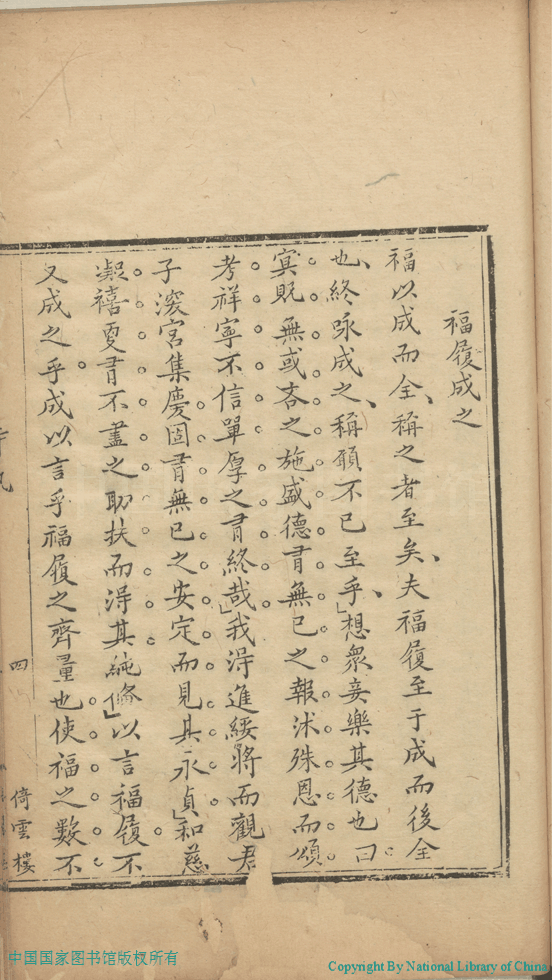 福履成之
福以成而全稱之者至矣夫福履至于成而後全
也終咏成之稱願不已至乎想眾妾樂其德也曰
冥貺無或吝之施盛德有無已之報沐殊恩而頌
考祥寧不信單厚之有終哉我得進綏將而觀君
子深宮集慶固有無已之安定而見其永貞和慈
凝禧更有不盡之助扶而得其純脩以言福履不
又成之乎成以言乎福履之齊量也使福之數不
四
倚雲樓
中国国家图书馆版权所有
Copyright By National Library of China